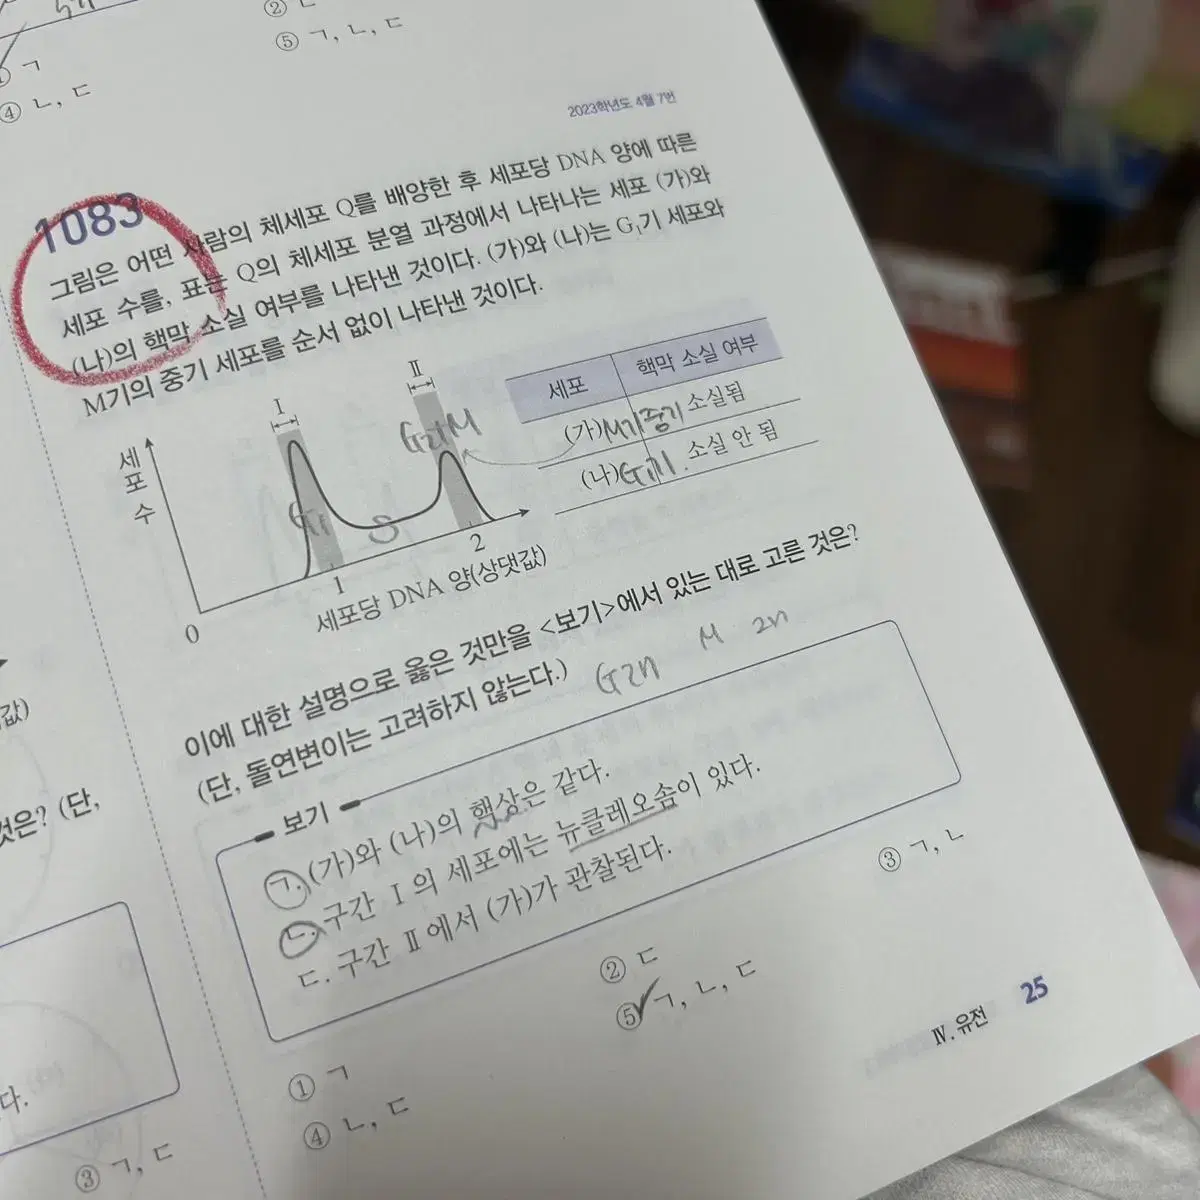 ② ㄴ
① ㄱ
⑤ ㄱ, ㄴ, ㄷ
④ ㄴ, ㄷ
2023학년도 4월 7번
1083
그림은 어떤 사람의 체세포 Q를 배양한 후 세포당 DNA 양에 따른
세포 수를, 표는 Q의 체세포 분열 과정에서 나타나는 세포 (가)와
(나)의 핵막 소실 여부를 나타낸 것이다. (가)와 (나)는 G₁기 세포와
M기의 중기 세포를 순서 없이 나타낸 것이다.
세포 수
Ⅰ
Ⅱ
G₁
S
G2 M
0
1
2
세포당 DNA 양(상댓값)
세포 핵막 소실 여부
(가) M기중기 소실됨
(나) G1기 소실 안 됨
이에 대한 설명으로 옳은 것만을 <보기>에서 있는 대로 고른 것은?
(단, 돌연변이는 고려하지 않는다.)
M 2n
보기
ㄱ. (가)와 (나)의 핵상은 같다.
ㄴ. 구간 Ⅰ의 세포에는 뉴클레오솜이 있다.
ㄷ. 구간 Ⅱ에서 (가)가 관찰된다.
① ㄱ
② ㄷ
③ ㄱ, ㄴ
④ ㄴ, ㄷ
⑤ ㄱ, ㄴ, ㄷ
Ⅳ. 유전 25
값)
것은? (단,
다.
③ ㄱ, ㄷ